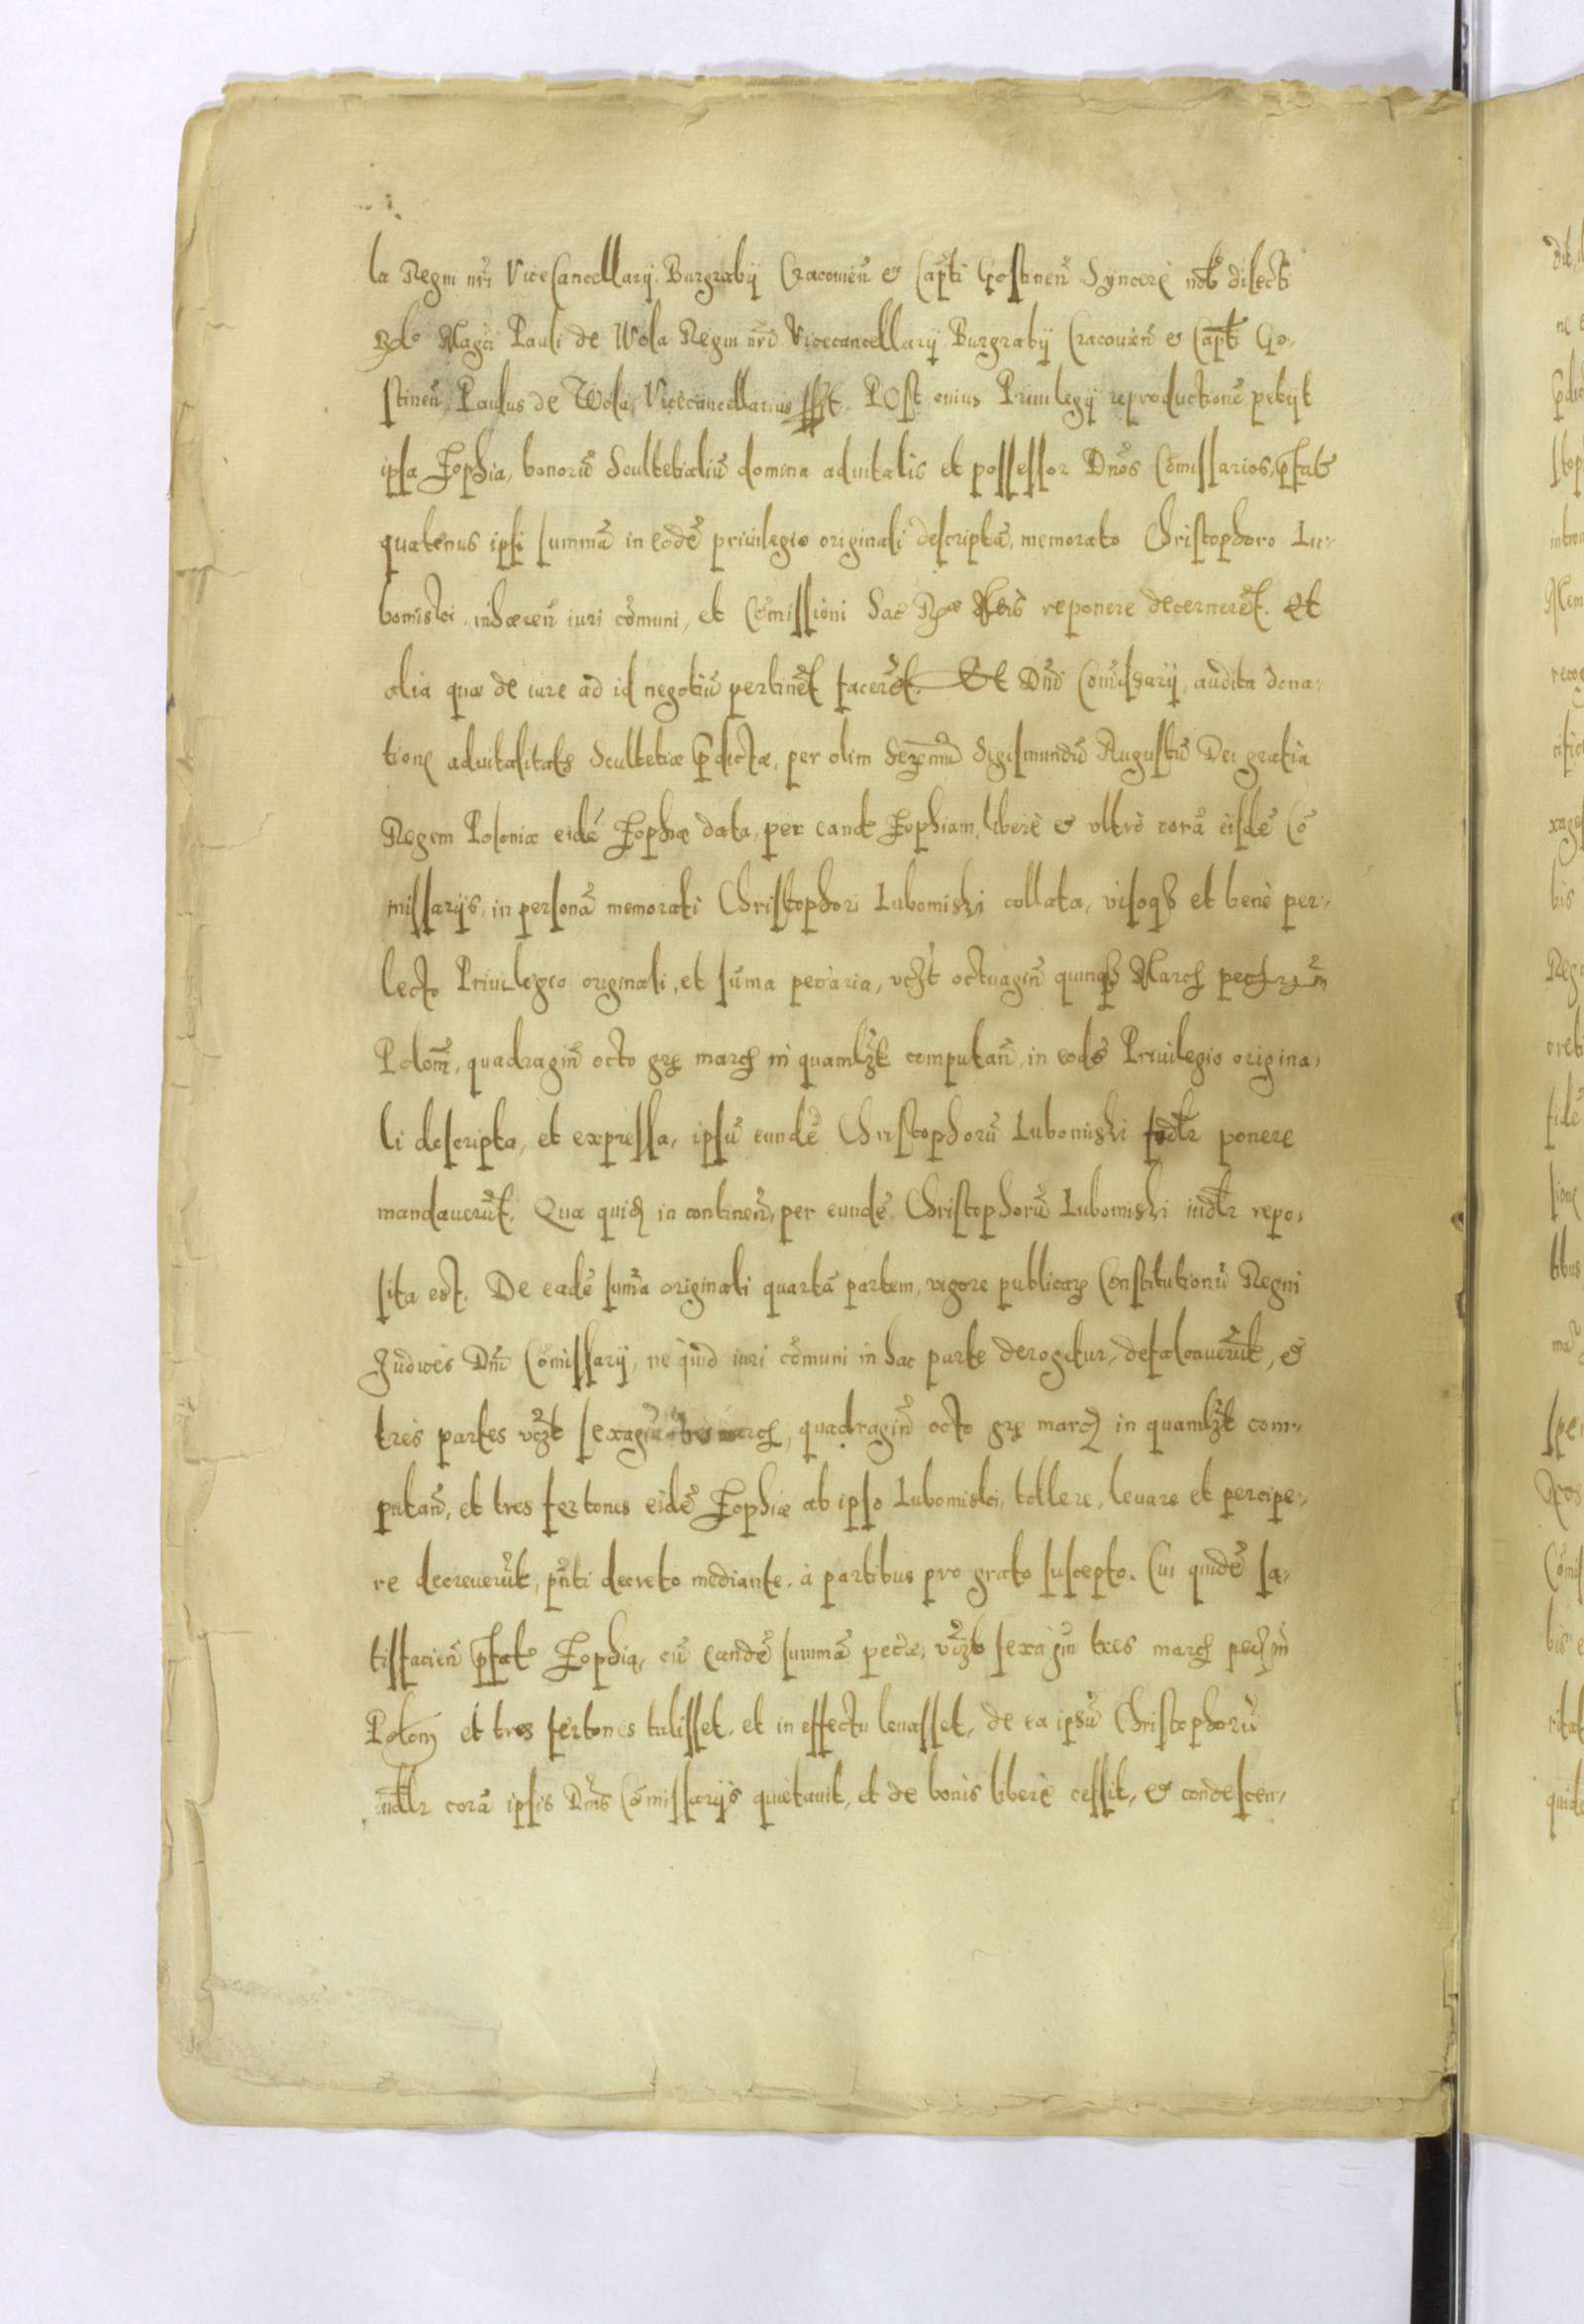 la Regni nr̃i ViceCancellarij Burgrabij Cracouieñ & Capt̃i Gostineñ Syncerè nob̃ dilecti
Relo Magci Pauli de Wola Regni nr̃i Vicecancellarij Burgrabij Cracouieñ & Capt̃ Go,
stineñ Paulus de Wola Vicecancellarius sst. POst cuius Priuilegij reproductionẽ petijt
ipsa Zophia, bonorũ Scultetialiũ domina aduitalis et possessor Dños Com̃issarios, pfat
quatenus ipsi summã in eodẽ priuilegio originali descriptã, memorato Christophoro Lu,
bomisci inhæreñ iuri com̃uni, et Com̃issioni Sac Ræ Mtis reponere decernerẽt. Et
alia quæ de iure ad id negotiũ pertinẽt facerẽt. Et Dñi Com̃issarij, audita dona,
tione aduitalitatis Scultetiæ pdictæ, per olim Serenmũ Sigismundũ Augustũ Dei gratia
Regem Poloniæ eidẽ Zophiæ data, per eand Zophiam, liberè & vltrò corã eisdẽ Cõ
missarijs, in personã memorati Christophori Lubomiski collata, visoq et benè per,
lecto Priuilegio originali, et sũma pecũaria, vczt octuagiñ quinq March pecuniarũ in
Poloñ, quadragiñ octo gr march in quamlzt computañ, in eodẽ Priuilegio origina,
li descripta, et expressa, ipsũ eundẽ Christophorũ Lubomiski iudlr ponere
mandauerũt. Quæ quid in contineñ, per eundẽ Christophorũ Lubomiski iudlr repo,
sita est. De eadẽ sum̃a originali quartã partem, vigore publicar Constitutionũ Regni
Iudices Dñi Com̃issarij, ne quid iuri com̃uni in hac parte derogetur, defalcauerũt, &
tres partes vczt sexagiñ tres march, quadragiñ octo gr march in quamlzt com,
putañ, et tres fertones eidẽ Zophiæ ab ipso Lubomisci, tollere, leuare et percipe,
re decreuerũt, pñti decreto mediante, à partibus pro grato suscepto. Cui quidẽ sa,
tisfacieñ pfat Zophia, cũ eandẽ summã pecũæ, vczt sexagiñ tres march pec in
Poloñ et tres fertones tulisset, et in effectu leuasset, de ea ipsũ Christophorũ
iudlr corã ipsis Dñis Com̃issarijs quietauit, et de bonis liberè cessit, & condescen,